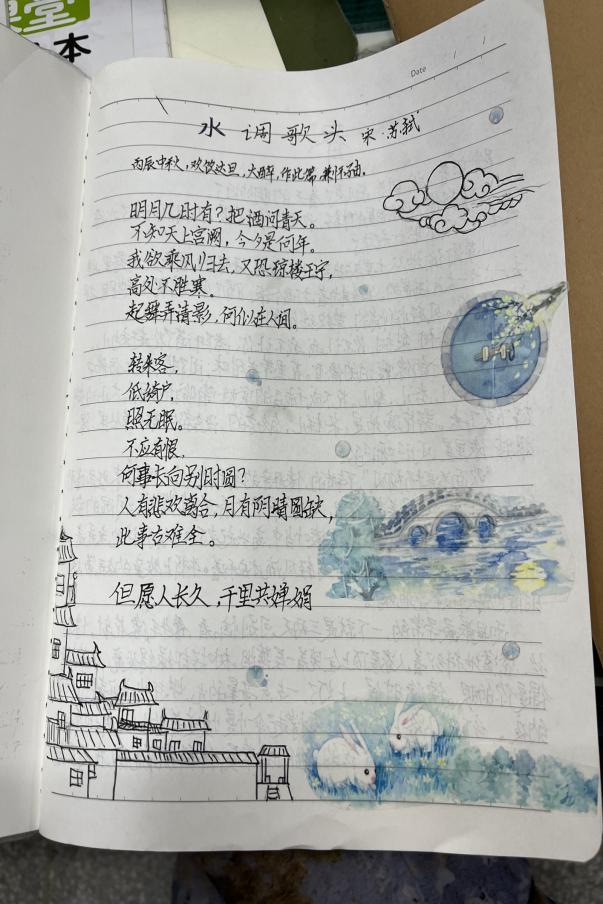 堂
本
Date / /
水调歌头 宋·苏轼
丙辰中秋,欢饮达旦,大醉,作此篇,兼怀子由。
明月几时有?把酒问青天。
不知天上宫阙,今夕是何年。
我欲乘风归去,又恐琼楼玉宇,
高处不胜寒。
起舞弄清影,何似在人间。
转朱客,
低绮户,
照无眠。
不应有恨,
何事长向别时圆?
人有悲欢离合,月有阴晴圆缺,
此事古难全。
但愿人长久,千里共婵娟